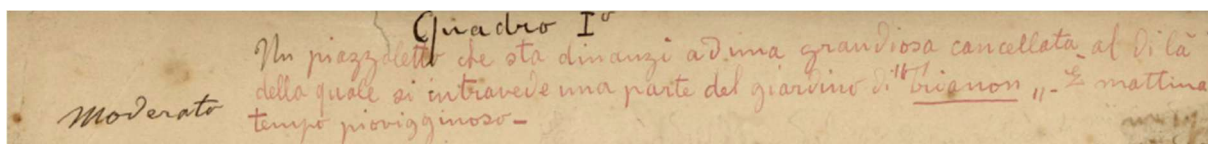 Quadro Iº
Un piazzaletto che sta dinanzi ad una grandiosa cancellata al di là
della quale si intravede una parte del giardino di "Trianon„ - È mattina
Moderato tempo piovigginoso -